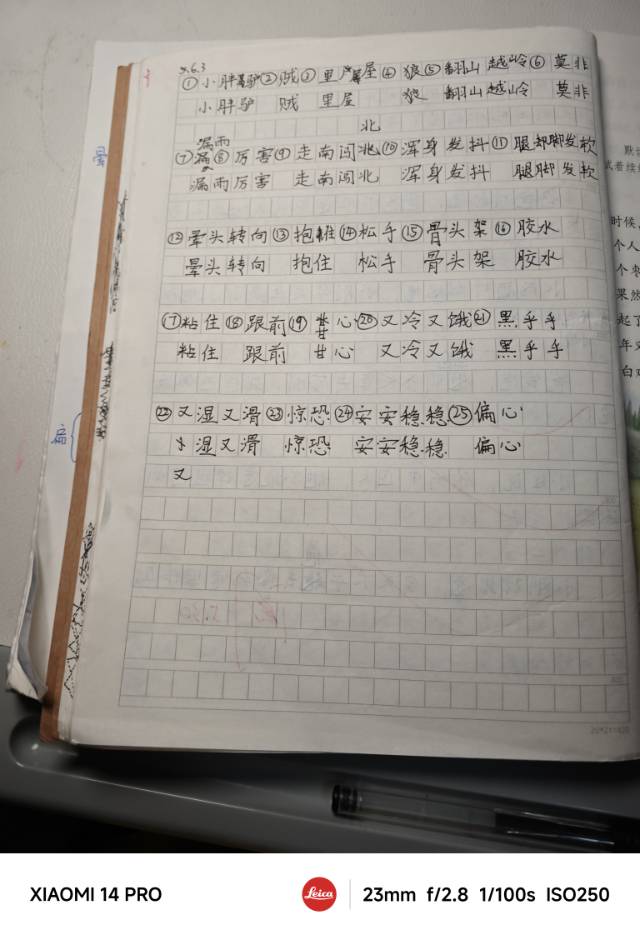 5.6.3
①小胖驴②贼③里屋④狼⑤翻山越岭⑥莫非
小胖驴 贼 里屋 狼 翻山越岭 莫非
北
漏雨
⑦漏⑧厉害⑨走南闯北⑩浑身发抖⑪腿脚发软
漏雨厉害 走南闯北 浑身发抖 腿脚发软
⑫晕头转向⑬抱住⑭松手⑮骨头架⑯胶水
晕头转向 抱住 松手 骨头架 胶水
⑰粘住⑱跟前⑲甘心⑳又冷又饿㉑黑乎乎
粘住 跟前 甘心 又冷又饿 黑乎乎
㉒又湿又滑㉓惊恐㉔安安稳稳㉕偏心
湿又滑 惊恐 安安稳稳 偏心
又
晕
默
试着续
时候
个人
个枣
果然
起了
年又
白对
XIAOMI 14 PRO
Leica
23mm f/2.8 1/100s ISO250